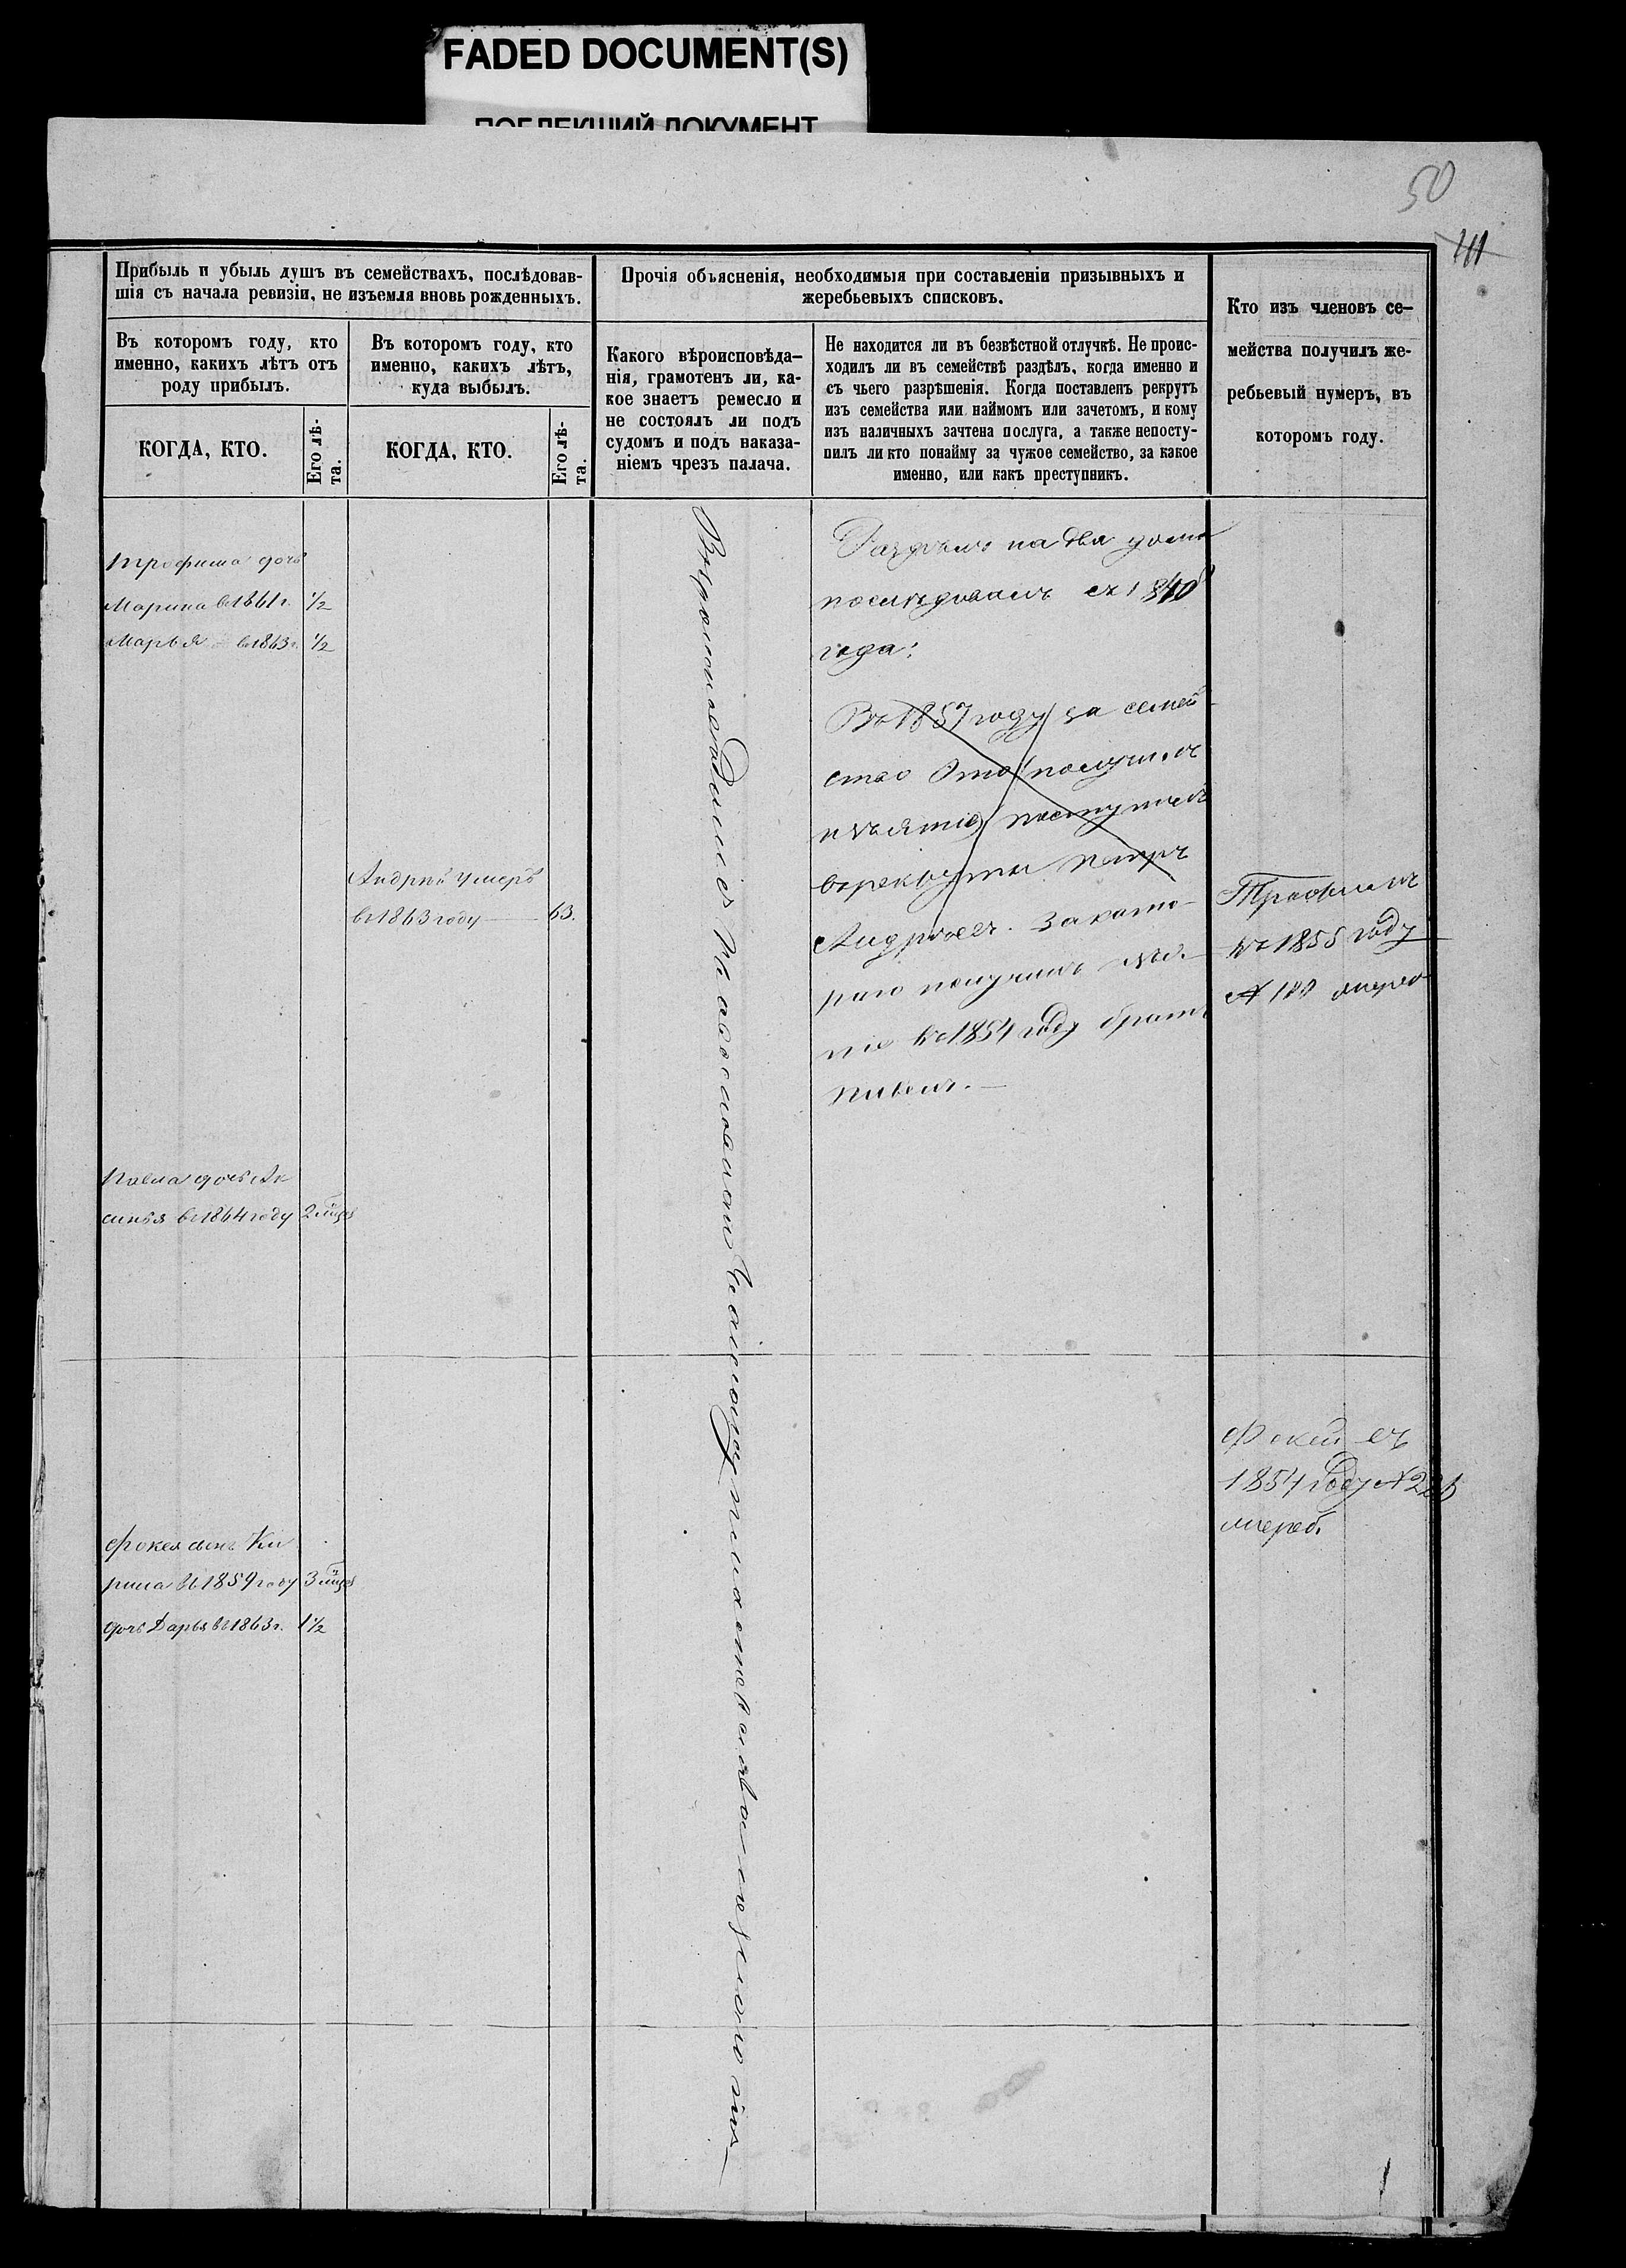 FADED DOCUMENT(S)
ПОБЛЕКШИЙ ДОКУМЕНТ
50
Прибыль и убыль душъ въ семействахъ, послѣдовав-
шія съ начала ревизіи, не изъемля вновь рожденныхъ.
Въ которомъ году, кто
именно, какихъ лѣтъ отъ
роду прибылъ.
КОГДА, КТО.
Его лѣ-
та.
Въ которомъ году, кто
именно, какихъ лѣтъ,
куда выбылъ.
КОГДА, КТО.
Его лѣ-
та.
Прочія объясненія, необходимыя при составленіи призывныхъ и
жеребьевыхъ списковъ.
Какого вѣроисповѣда-
нія, грамотенъ ли, ка-
кое знаетъ ремесло и
не состоялъ ли подъ
судомъ и подъ наказа-
ніемъ чрезъ палача.
Не находится ли въ безвѣстной отлучкѣ. Не проис-
ходилъ ли въ семействѣ раздѣлъ, когда именно и
съ чьего разрѣшенія. Когда поставленъ рекрутъ
изъ семейства или наймомъ или зачетомъ, и кому
изъ наличныхъ зачтена послуга, а также непосту-
пилъ ли кто понайму за чужое семейство, за какое
именно, или какъ преступникъ.
Кто изъ членовъ се-
мейства получилъ же-
ребьевый нумеръ, въ
которомъ году.
Трофима дочь
Марина въ 1861 г. 1/2
Марья - въ 1863 г. 1/2
Андрей умеръ
въ 1863 году — 63.
Павла дочь Ак
синья въ 1864 году 2 мѣсц
Фокея сынъ Ки
рила въ 1859 году 3 мѣсц
дочь Дарья въ 1863 г. 1 1/2
Вѣроисповѣданія Православнаго
Раздѣлъ на два дома
послѣдовалъ съ 1840
года:
Въ 1857 году за семей
ство это получилъ
поступилъ
въ рекруты Петръ
Андреевъ. За кото-
раго получилъ
въ 1854 году братъ
Павелъ. —
Трофимъ
въ 1855 году
№ 180 жереб
Фокей въ
1854 году № 226
жереб.